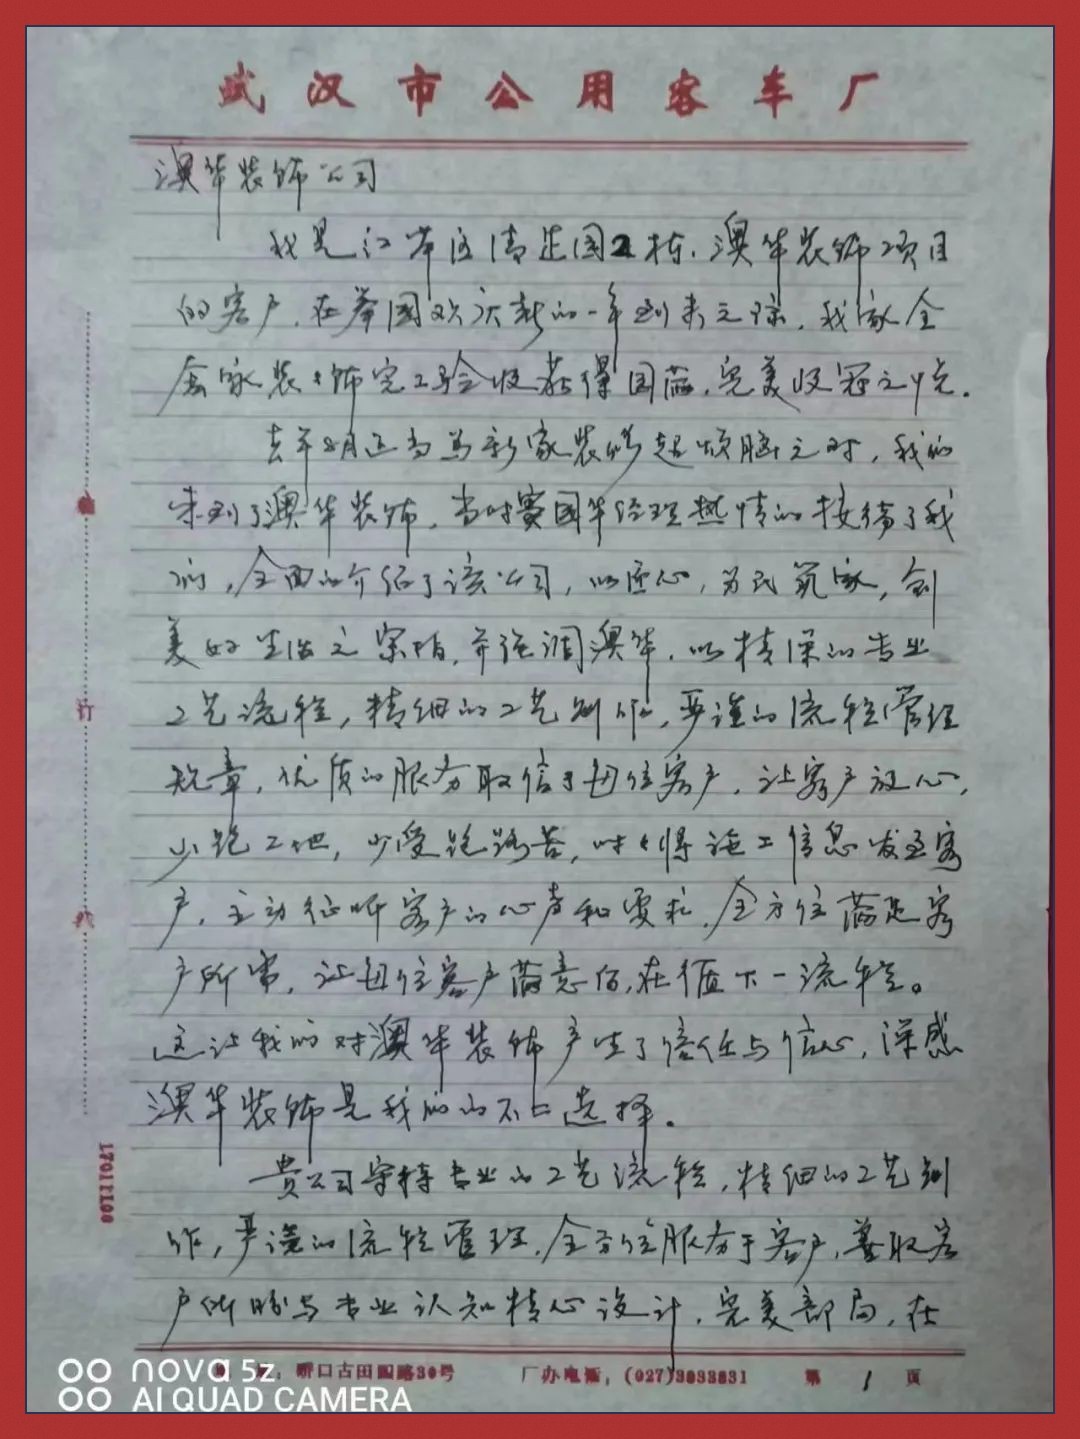 武汉市公用客车厂
澳华装饰公司
我是江岸区清芷园2栋.澳华装饰项目
的客户.在举国欢庆新的一年到来之际,我家全
屋家装装饰完工验收获得圆满,完美收冠之悦.
去年8月正当为新家装修起烦脑之时,我们
来到了澳华装饰,当时国华经理热情的接待了我
们,全面的介绍了该公司,以匠心,为民筑家,创
美好生活之宗旨,并强调澳华.以精深的专业
工艺流程,精细的工艺制作,严谨的流程管理
规章,优质的服务取信于每位客户,让客户放心,
少跑工地,少受跑路苦,时时将施工信息发至客
户,主动征听客户的心声和要求,全方位满足客
户所需,让每位客户满意后,在值下一流程。
这让我们对澳华装饰产生了信任与信心,深感
澳华装饰是我们的不二选择.
贵公司守持专业的工艺流程,精细的工艺制
作,严谨的流程管理,全方位服务于客户,兼取客
户所盼与专业认知精心设计,完美部局,在
订
17011100
硚口古田四路30号
厂办电话:(027)3833831
第1页
nova 5z
AI QUAD CAMERA